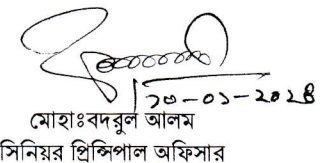 ১০-০১-২০২৪
মোহাঃবদরুল আলম
সিনিয়র প্রিন্সিপাল অফিসার